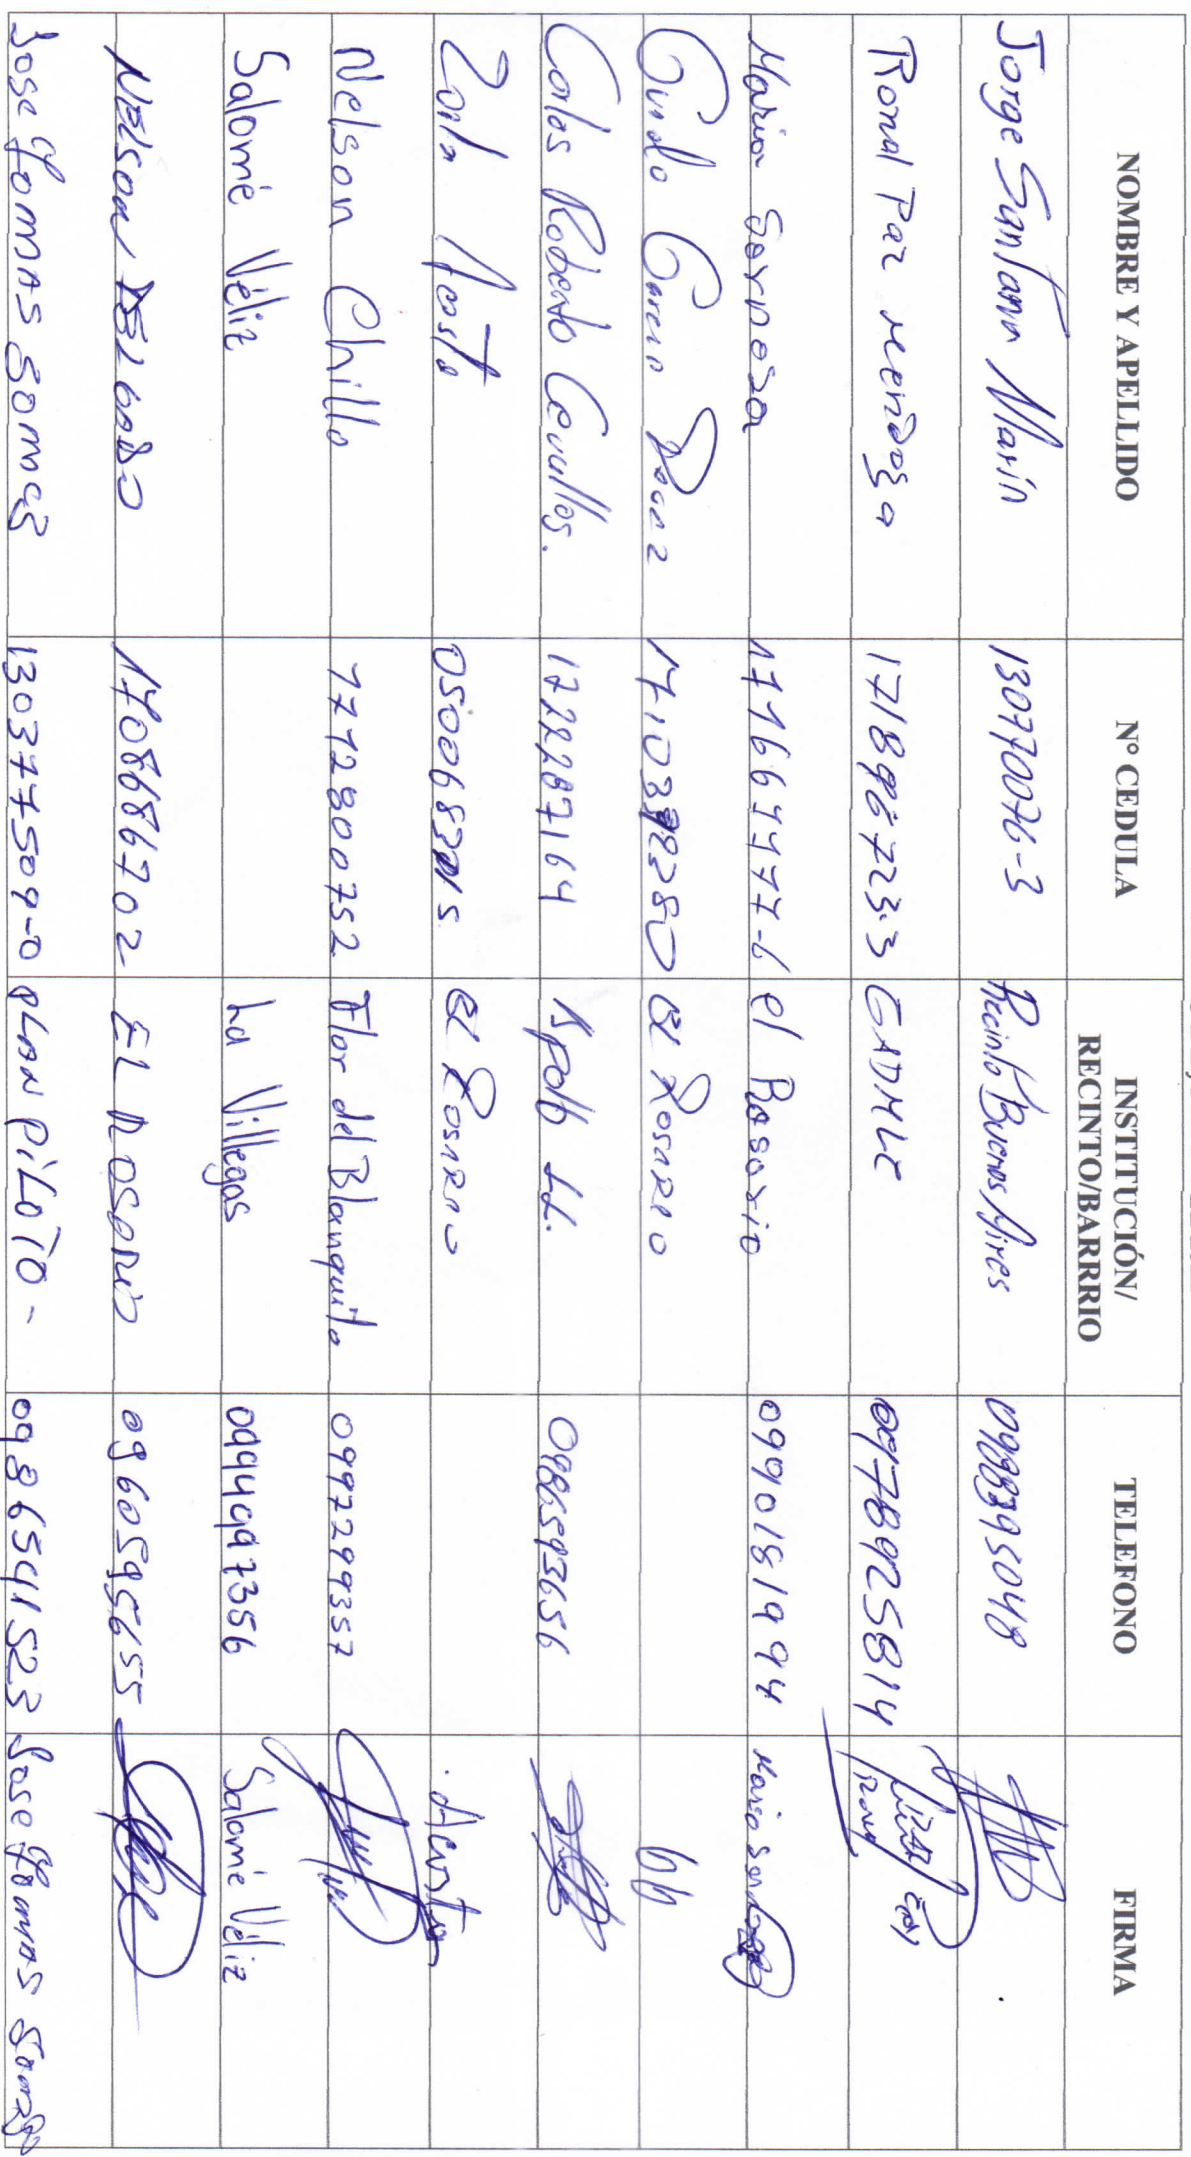 NOMBRE Y APELLIDO N° CEDULA INSTITUCIÓN/ RECINTO/BARRRIO TELEFONO FIRMA
Jorge Santana Marín 130770076-3 Recinto Buenos Aires 0988395048
Ronal Paz mendoza 171896723-3 GADMLC 0978925814
Maria Sornoza 171664777-6 el Rosario 0990181994 Maria
Guido Garcia 1710392280 El Rosario
Carlos Roberto Cevallos. 1722287164 0986593656
Zoila Acosta El Rosario
Nelson Chillo 1712800752 Flor del Blanquito 0997299357
Salomé Véliz La Villegas 0994997356 Salomé Véliz
Nelson Delgado 1708686702 EL ROSARIO 0960595655
130377509-0 PLAN PILOTO - 0986541523